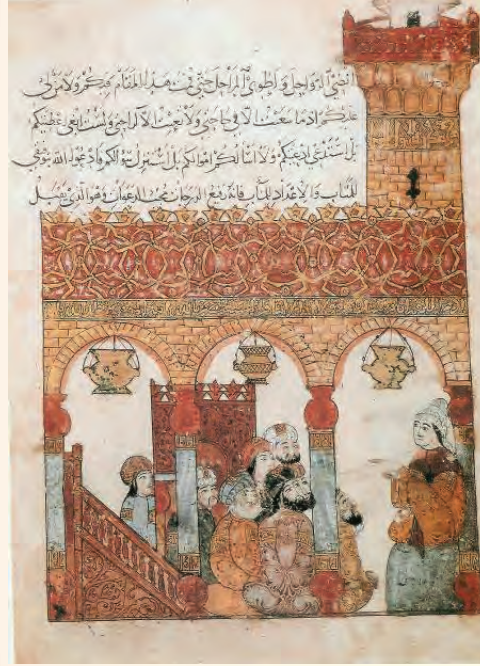 انضي الرواحل واطوي المراحل حتى قمت هذا المقام فيكم ولا من لي
عليكم اذ ما سعيت الا في حاجتي ولا تعبت الا لراحتي ولست ابغي عطيتكم
بل استدعي ادعيتكم ولا اسألكم اموالكم بل استنزل سؤالكم وادعوا الله بتوفيقي
للمتاب والاعداد للمآب فانه رفيع الدرجات مجيب الدعوات وهو الذي يقبل